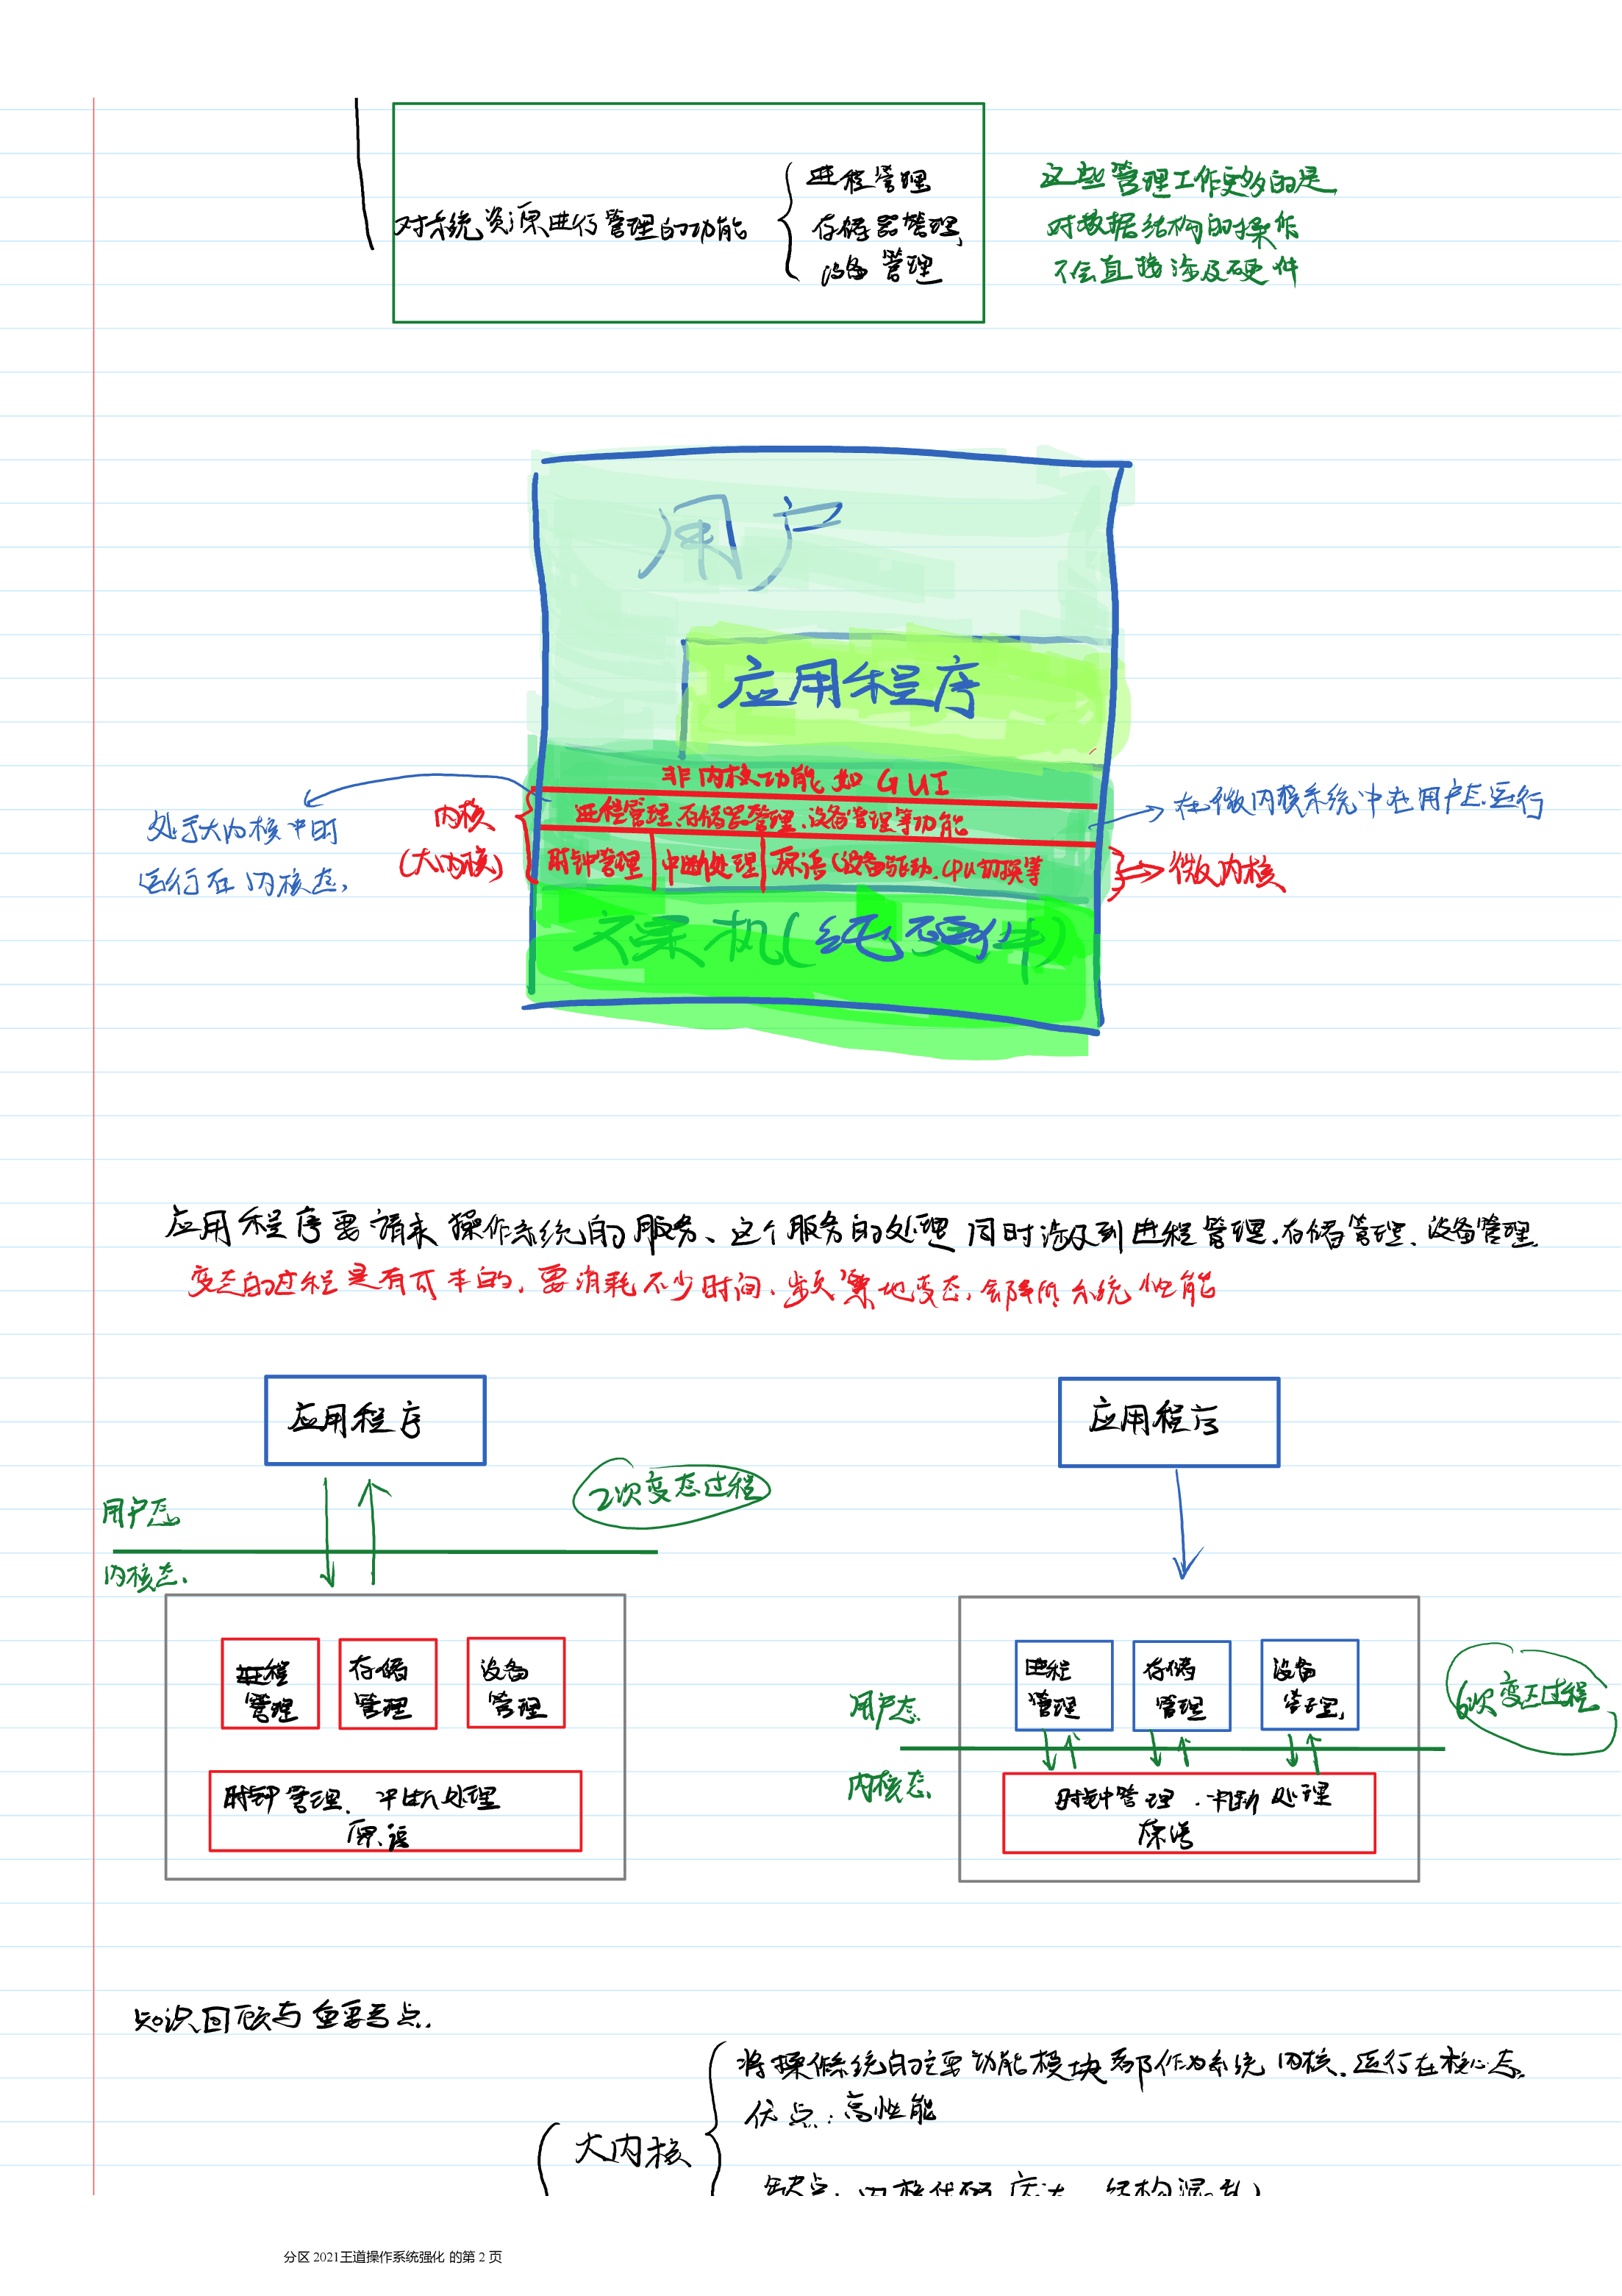 对系统资源进行管理的功能
进程管理
存储器管理
设备管理
这些管理工作更多的是
对数据结构的操作
不会直接涉及硬件
用户
应用程序
非内核功能 如 GUI
进程管理、存储器管理、设备管理等功能
时钟管理 中断处理 原语(设备驱动、CPU切换等
裸机(纯硬件)
内核
(大内核)
处于大内核中时
运行在内核态
在微内核系统中在用户态运行
微内核
应用程序要请求操作系统的服务、这个服务的处理同时涉及到进程管理、存储管理、设备管理
变态的过程是有成本的,要消耗不少时间,频繁地变态,会降低系统性能
应用程序
2次变态过程
用户态
内核态
进程管理
存储管理
设备管理
时钟管理、中断处理
原语
应用程序
进程管理
存储管理
设备管理
用户态
内核态
6次变态过程
时钟管理、中断处理
原语
知识回顾与重要考点
大内核
将操作系统的主要功能模块都作为系统内核,运行在核心态
优点:高性能
缺点:内核代码庞大,结构混乱
分区 2021王道操作系统强化 的第 2 页